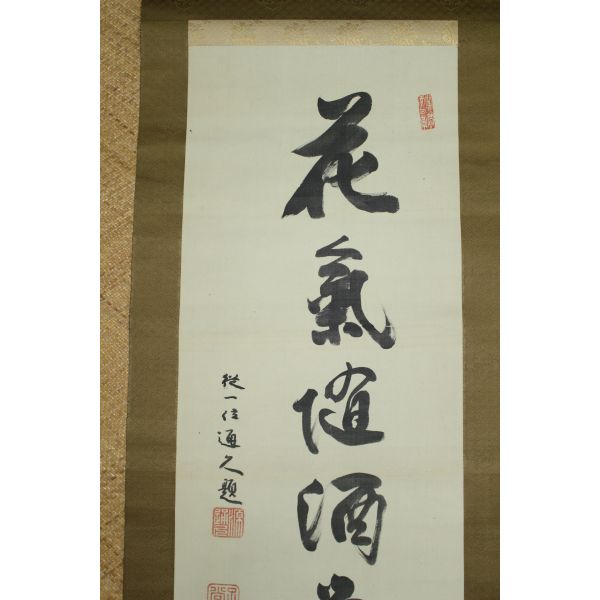 花氣隨酒
從一位通久題